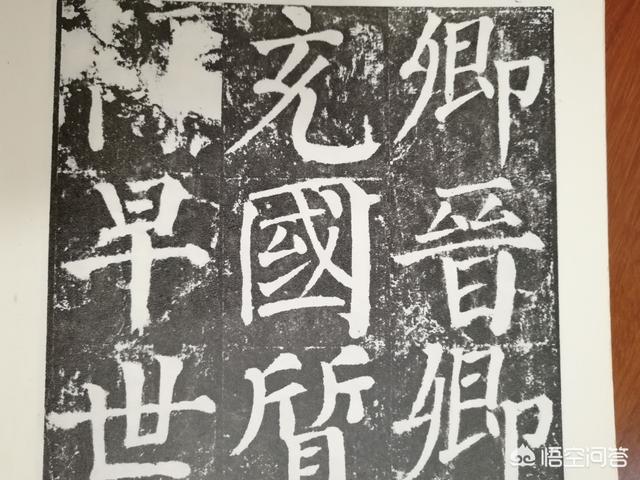 卿晉卿
充國質
早世
悟空问答